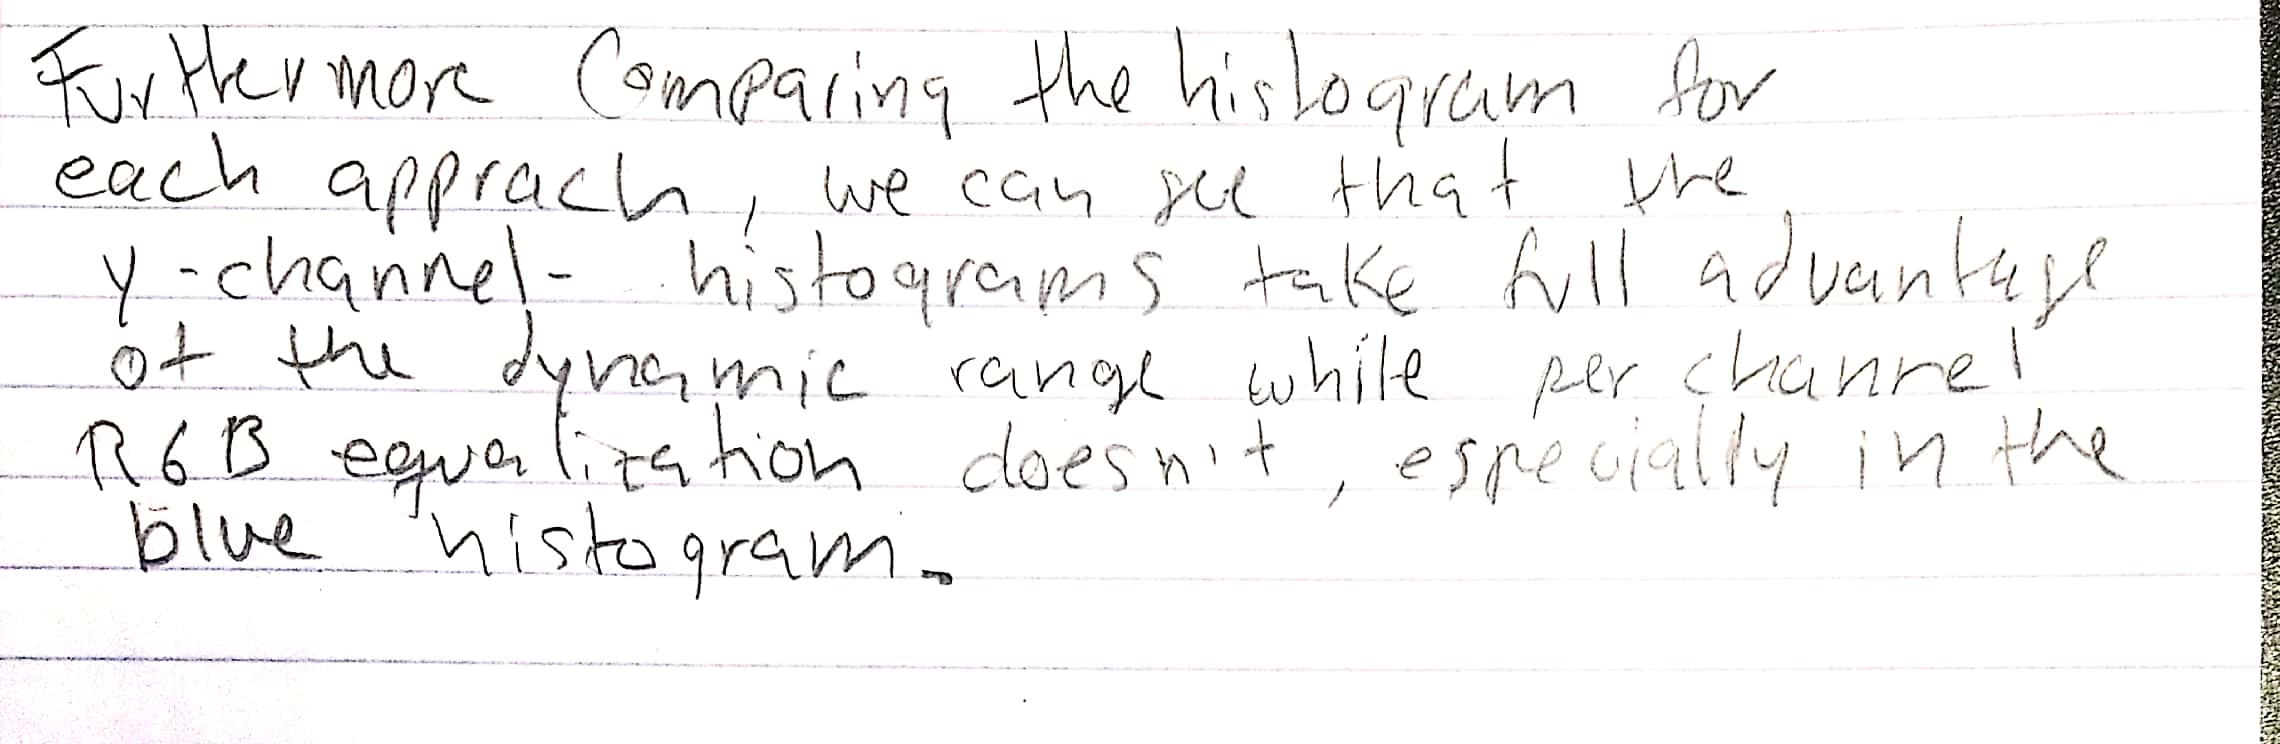 Furthermore Comparing the histogram for
each apprach, we can see that the
y-channel- histograms take full advantage
of the dynamic range while per channel
RGB equalization doesn't, especially in the
blue histogram.